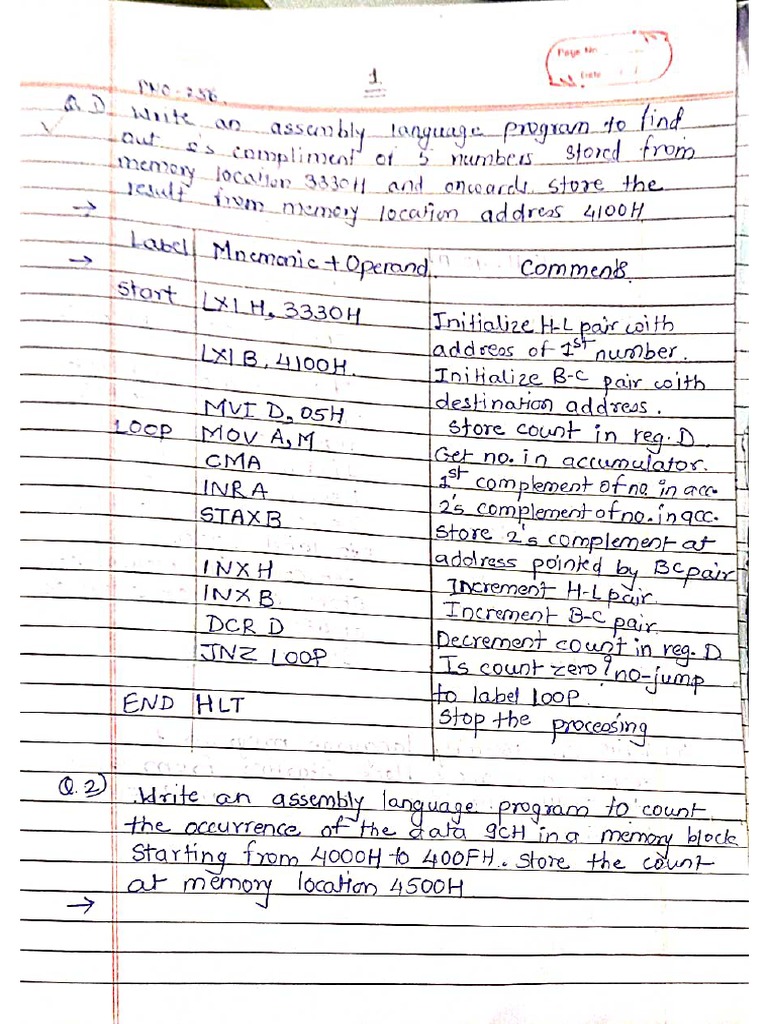 Page No.
Date / /
1.
PNO-256.
Q.1) Write an assembly language program to find
out 2's compliment of 5 numbers stored from
memory location 3330H and onwards. store the
→ result from memory location address 4100H
→ Label Mnemonic + Operand. Comments.
Start LXI H, 3330H Initialize H-L pair with
address of 1st number.
LXI B, 4100H. Initialize B-C pair with
destination address.
MVI D, 05H store count in reg. D.
LOOP MOV A, M Get no. in accumulator.
CMA 1st complement of no. in acc.
INR A 2's complement of no. in acc.
STAX B store 2's complement at
address pointed by BC pair
INX H Increment H-L pair
INX B Increment B-C pair
DCR D Decrement count in reg. D
JNZ LOOP Is count zero? no-jump
to label loop.
END HLT Stop the proceosing
Q.2) Write an assembly language program to count
the occurrence of the data 9CH in a memory block
Starting from 4000H to 400FH. Store the count
at memory location 4500H
→